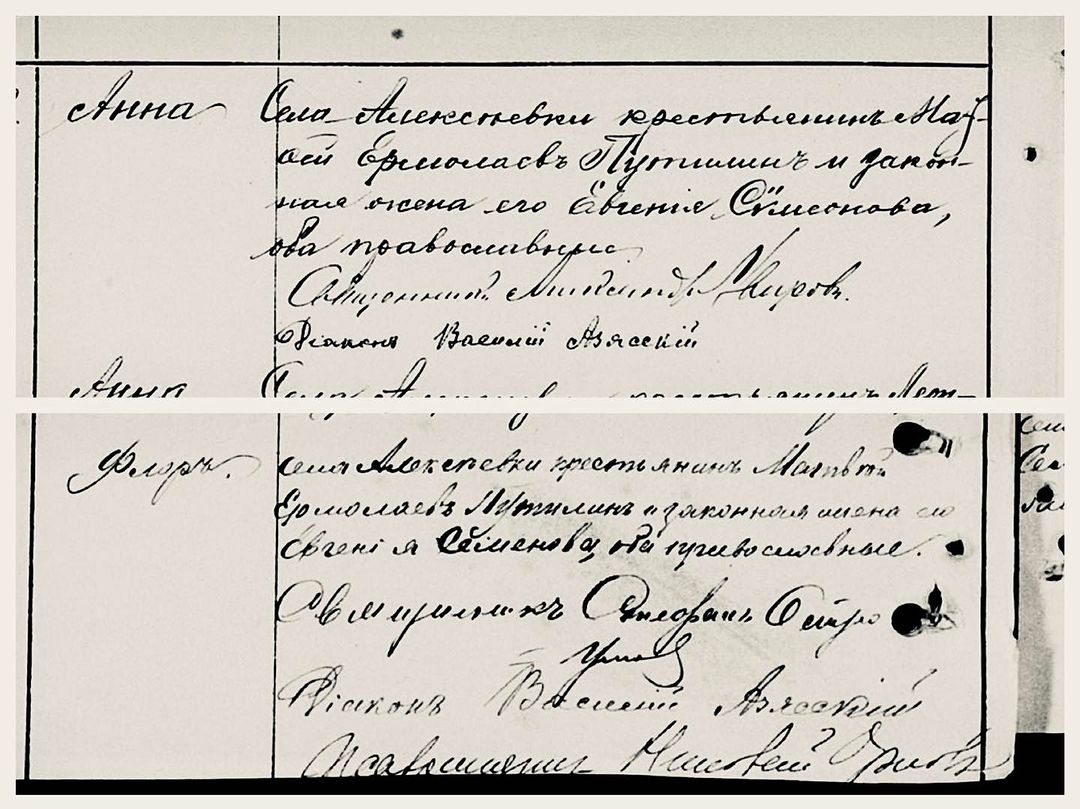 Анна
Села Алексѣевки крестьянинъ Мат-
вѣй Ермолаевъ Путилинъ и закон-
ная жена его Евгенія Семенова,
оба православные
Священникъ Александръ
Діаконъ Василій Азясскій
Анна
Села крестьянинъ
Флоръ.
Села Алексѣевки крестьянинъ Матвѣй
Ермолаевъ Путилинъ и законная жена его
Евгенія Семенова, оба православные.
Священникъ Стефанъ Остро
умовъ
Діаконъ Василій Азясскій
Псаломщикъ